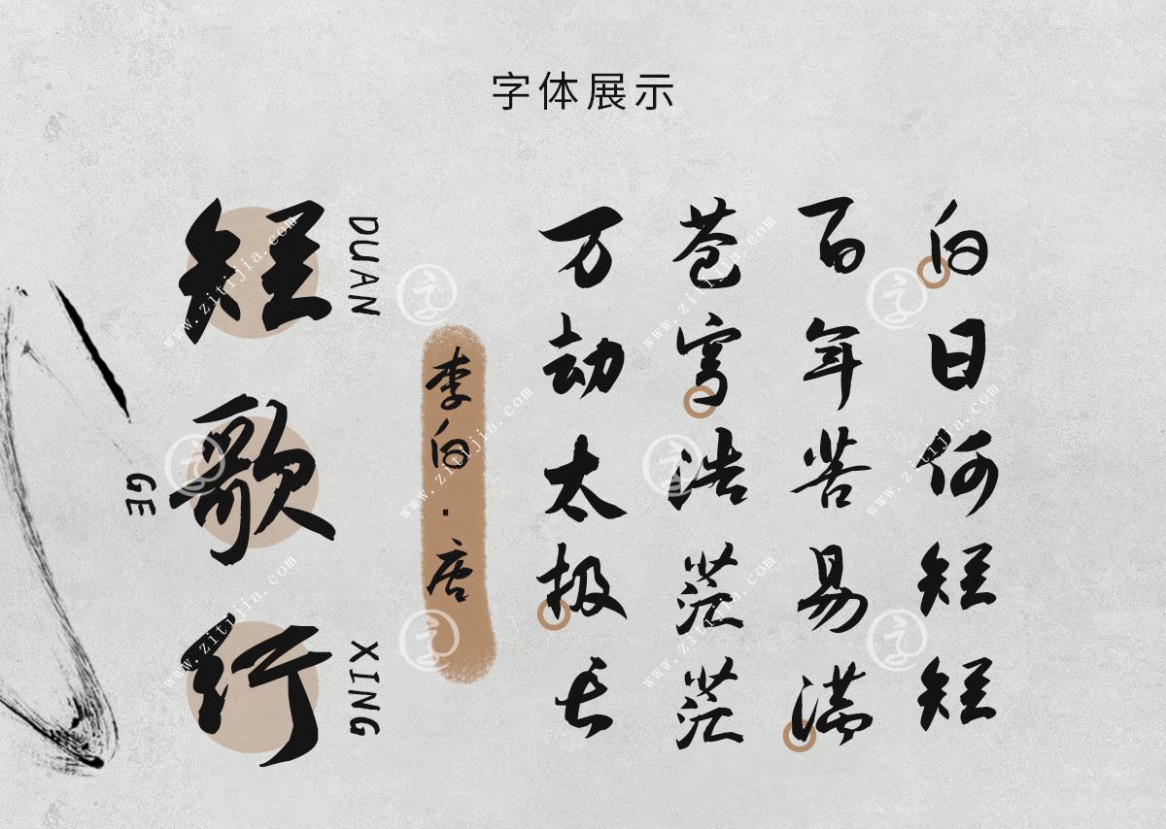 字体展示
白日何短短
百年苦易满
苍穹浩茫茫
万劫太极长
李白·唐
短歌行
DUAN
GE
XING
www.zitijia.com